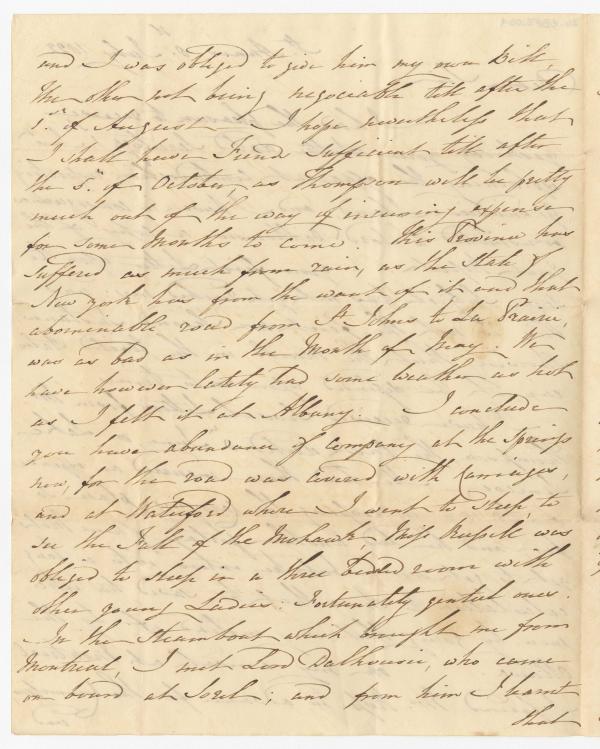 and I was obliged to give him my own Bill,
the other not being negociable till after the
5th of August — I hope nevertheless that
I shall have Funds sufficient till after
the 5th of October, as Thompson will be pretty
much out of the way of incurring expense
for some Months to come. This Province has
suffered as much from rain, as the State of
New york has from the want of it and that
abominable road from St Johns to La Prairie,
was as bad as in the Month of May. We
have however lately had some weather as hot
as I felt it at Albany. I conclude
you have abundance of company at the Springs
now, for the road was covered with Carriages,
and at Waterford where I went to sleep, to
see the Fall of the Mohawk, Miss Russell was
obliged to sleep in a three bedded room with
other young Ladies: Fortunately genteel ones.
In the Steamboat which brought me from
Montreal, I met Lord Dalhousie, who came
on board at Sorel; and from him I learnt
that